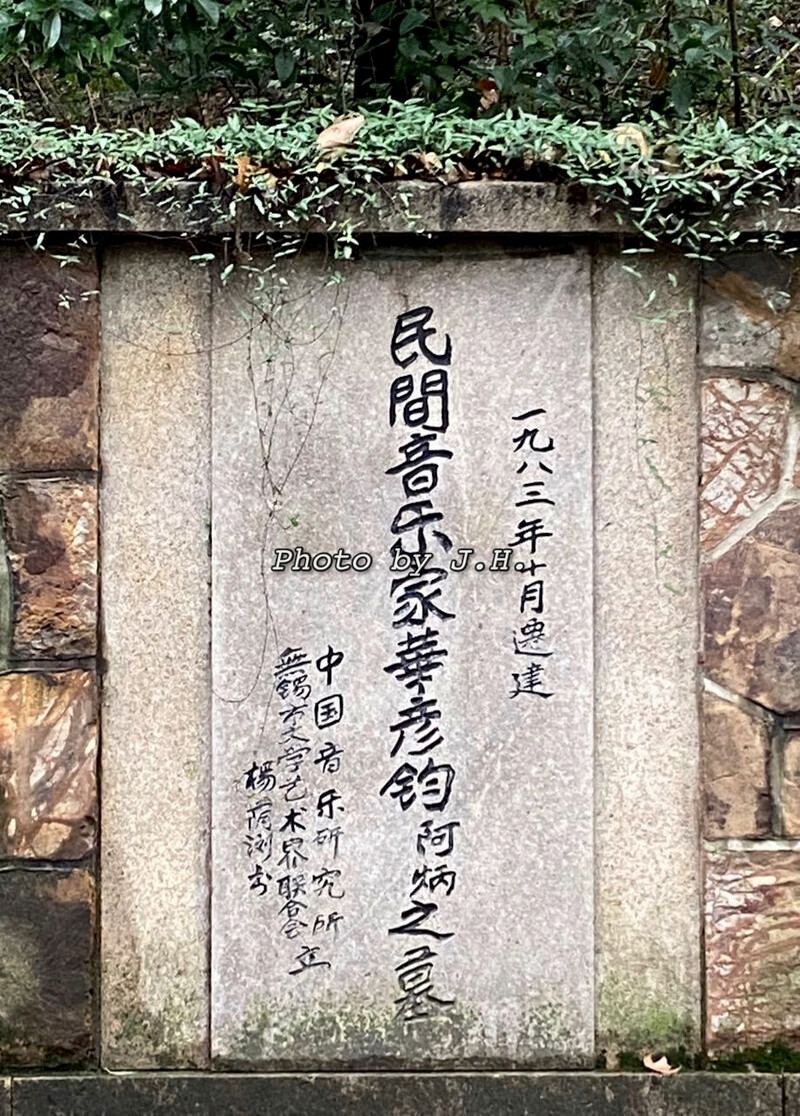 一九八三年十月遷建
民間音乐家華彦鈞阿炳之墓
中国音乐研究所
無錫市文学艺术界联合会 立
楊荫浏书
Photo by J.H.